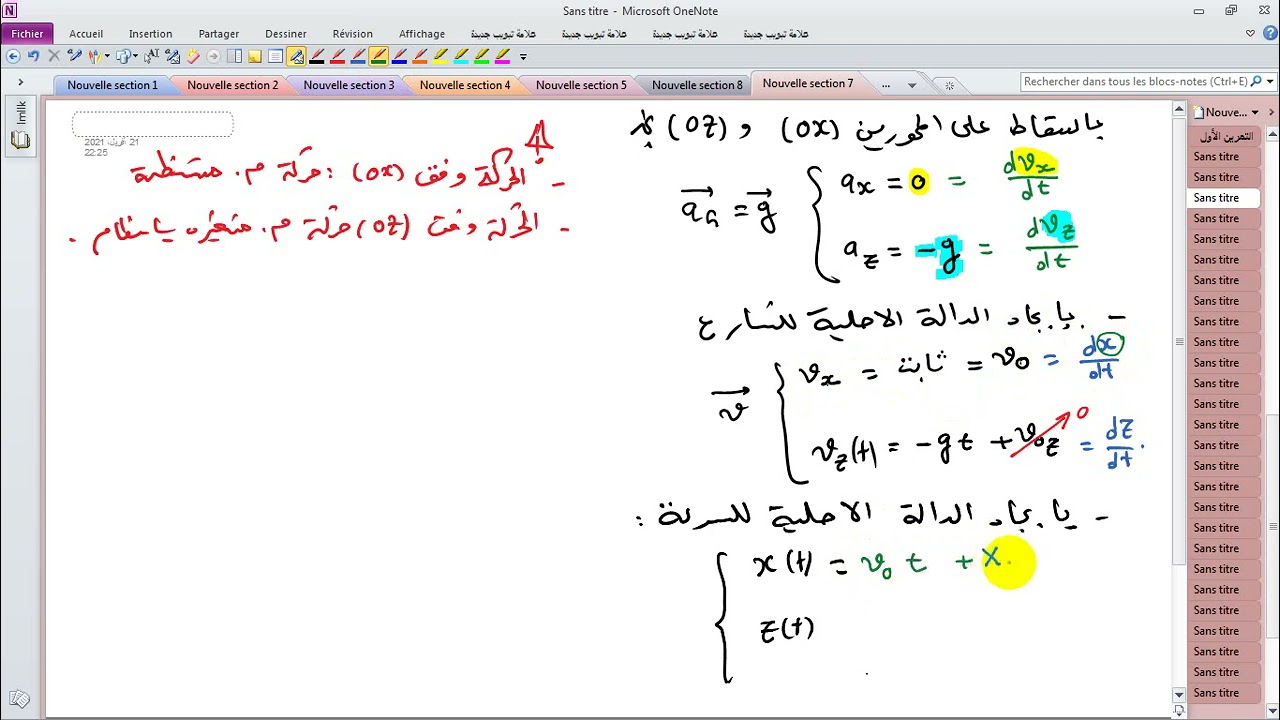 Sans titre - Microsoft OneNote
Fichier Accueil Insertion Partager Dessiner Révision Affichage علامة تبويب جديدة علامة تبويب جديدة علامة تبويب جديدة علامة تبويب جديدة
Nouvelle section 1 Nouvelle section 2 Nouvelle section 3 Nouvelle section 4 Nouvelle section 5 Nouvelle section 8 Nouvelle section 7 ...
Rechercher dans tous les blocs-notes (Ctrl+E)
Imlik
21 أفريل، 2021
22:25
بالسقاط على المحورين (OX) و (OZ)
- الحركة وفق (OX) : حركة م. منتظمة
- الحركة وفق (OZ) حركة م. متغيره بانتظام .
a_G = g
a_x = 0 = dv_x/dt
a_z = -g = dv_z/dt
- بإيجاد الدالة الاصلية للتسارع
v
v_x = ثابت = v_0 = dx/dt
v_z(t) = -gt + v_0z = dz/dt .
0
- بإيجاد الدالة الاصلية للسرعة :
x(t) = v_0 t + X.
z(t)
Nouve...
التمرين الأول
Sans titre
Sans titre
Sans titre
Sans titre
Sans titre
Sans titre
Sans titre
Sans titre
Sans titre
Sans titre
Sans titre
Sans titre
Sans titre
Sans titre
Sans titre
Sans titre
Sans titre
Sans titre
Sans titre
Sans titre
Sans titre
Sans titre
Sans titre
Sans titre
Sans titre
Sans titre
Sans titre